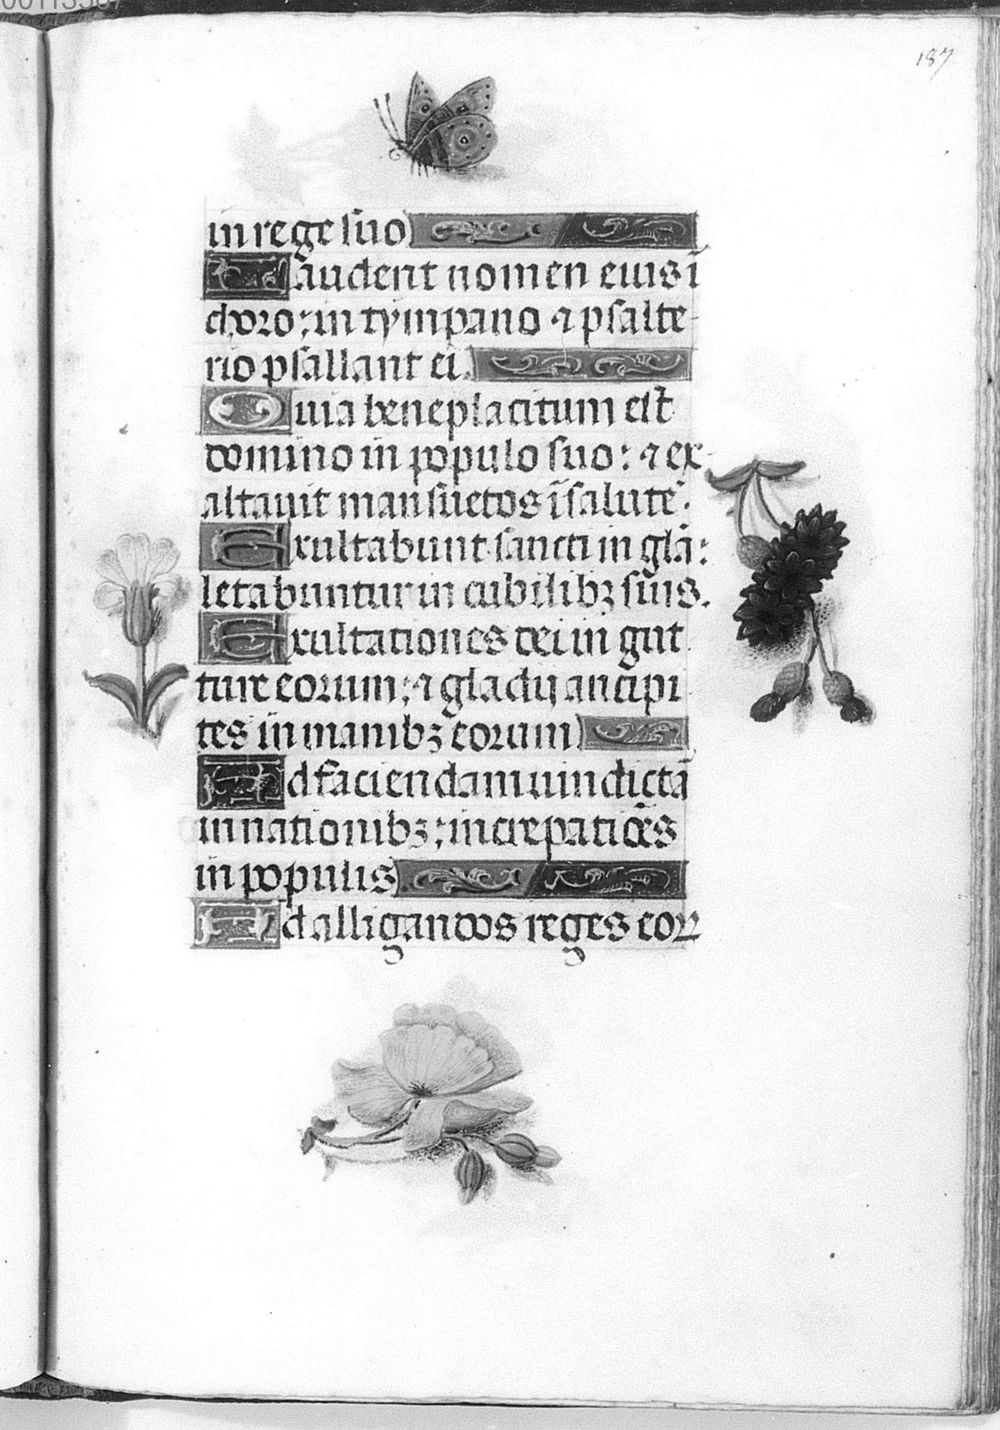 187
in rege suo
Laudent nomen eius ī
choro: in tympano ⁊ psalte-
rio psallant ei.
Quia beneplacitum est
domino in populo suo: ⁊ ex-
altauit mansuetos ī salutē.
Exultabunt sancti in glā:
letabuntur in cubilibꝫ suis.
Exultationes dei in gut
ture eorum: ⁊ gladij ancipi
tes in manibꝫ eorum
Ad faciendam uindictā
in nationibꝫ: increpatiōes
in populis
Ad alligandos reges eoꝝ